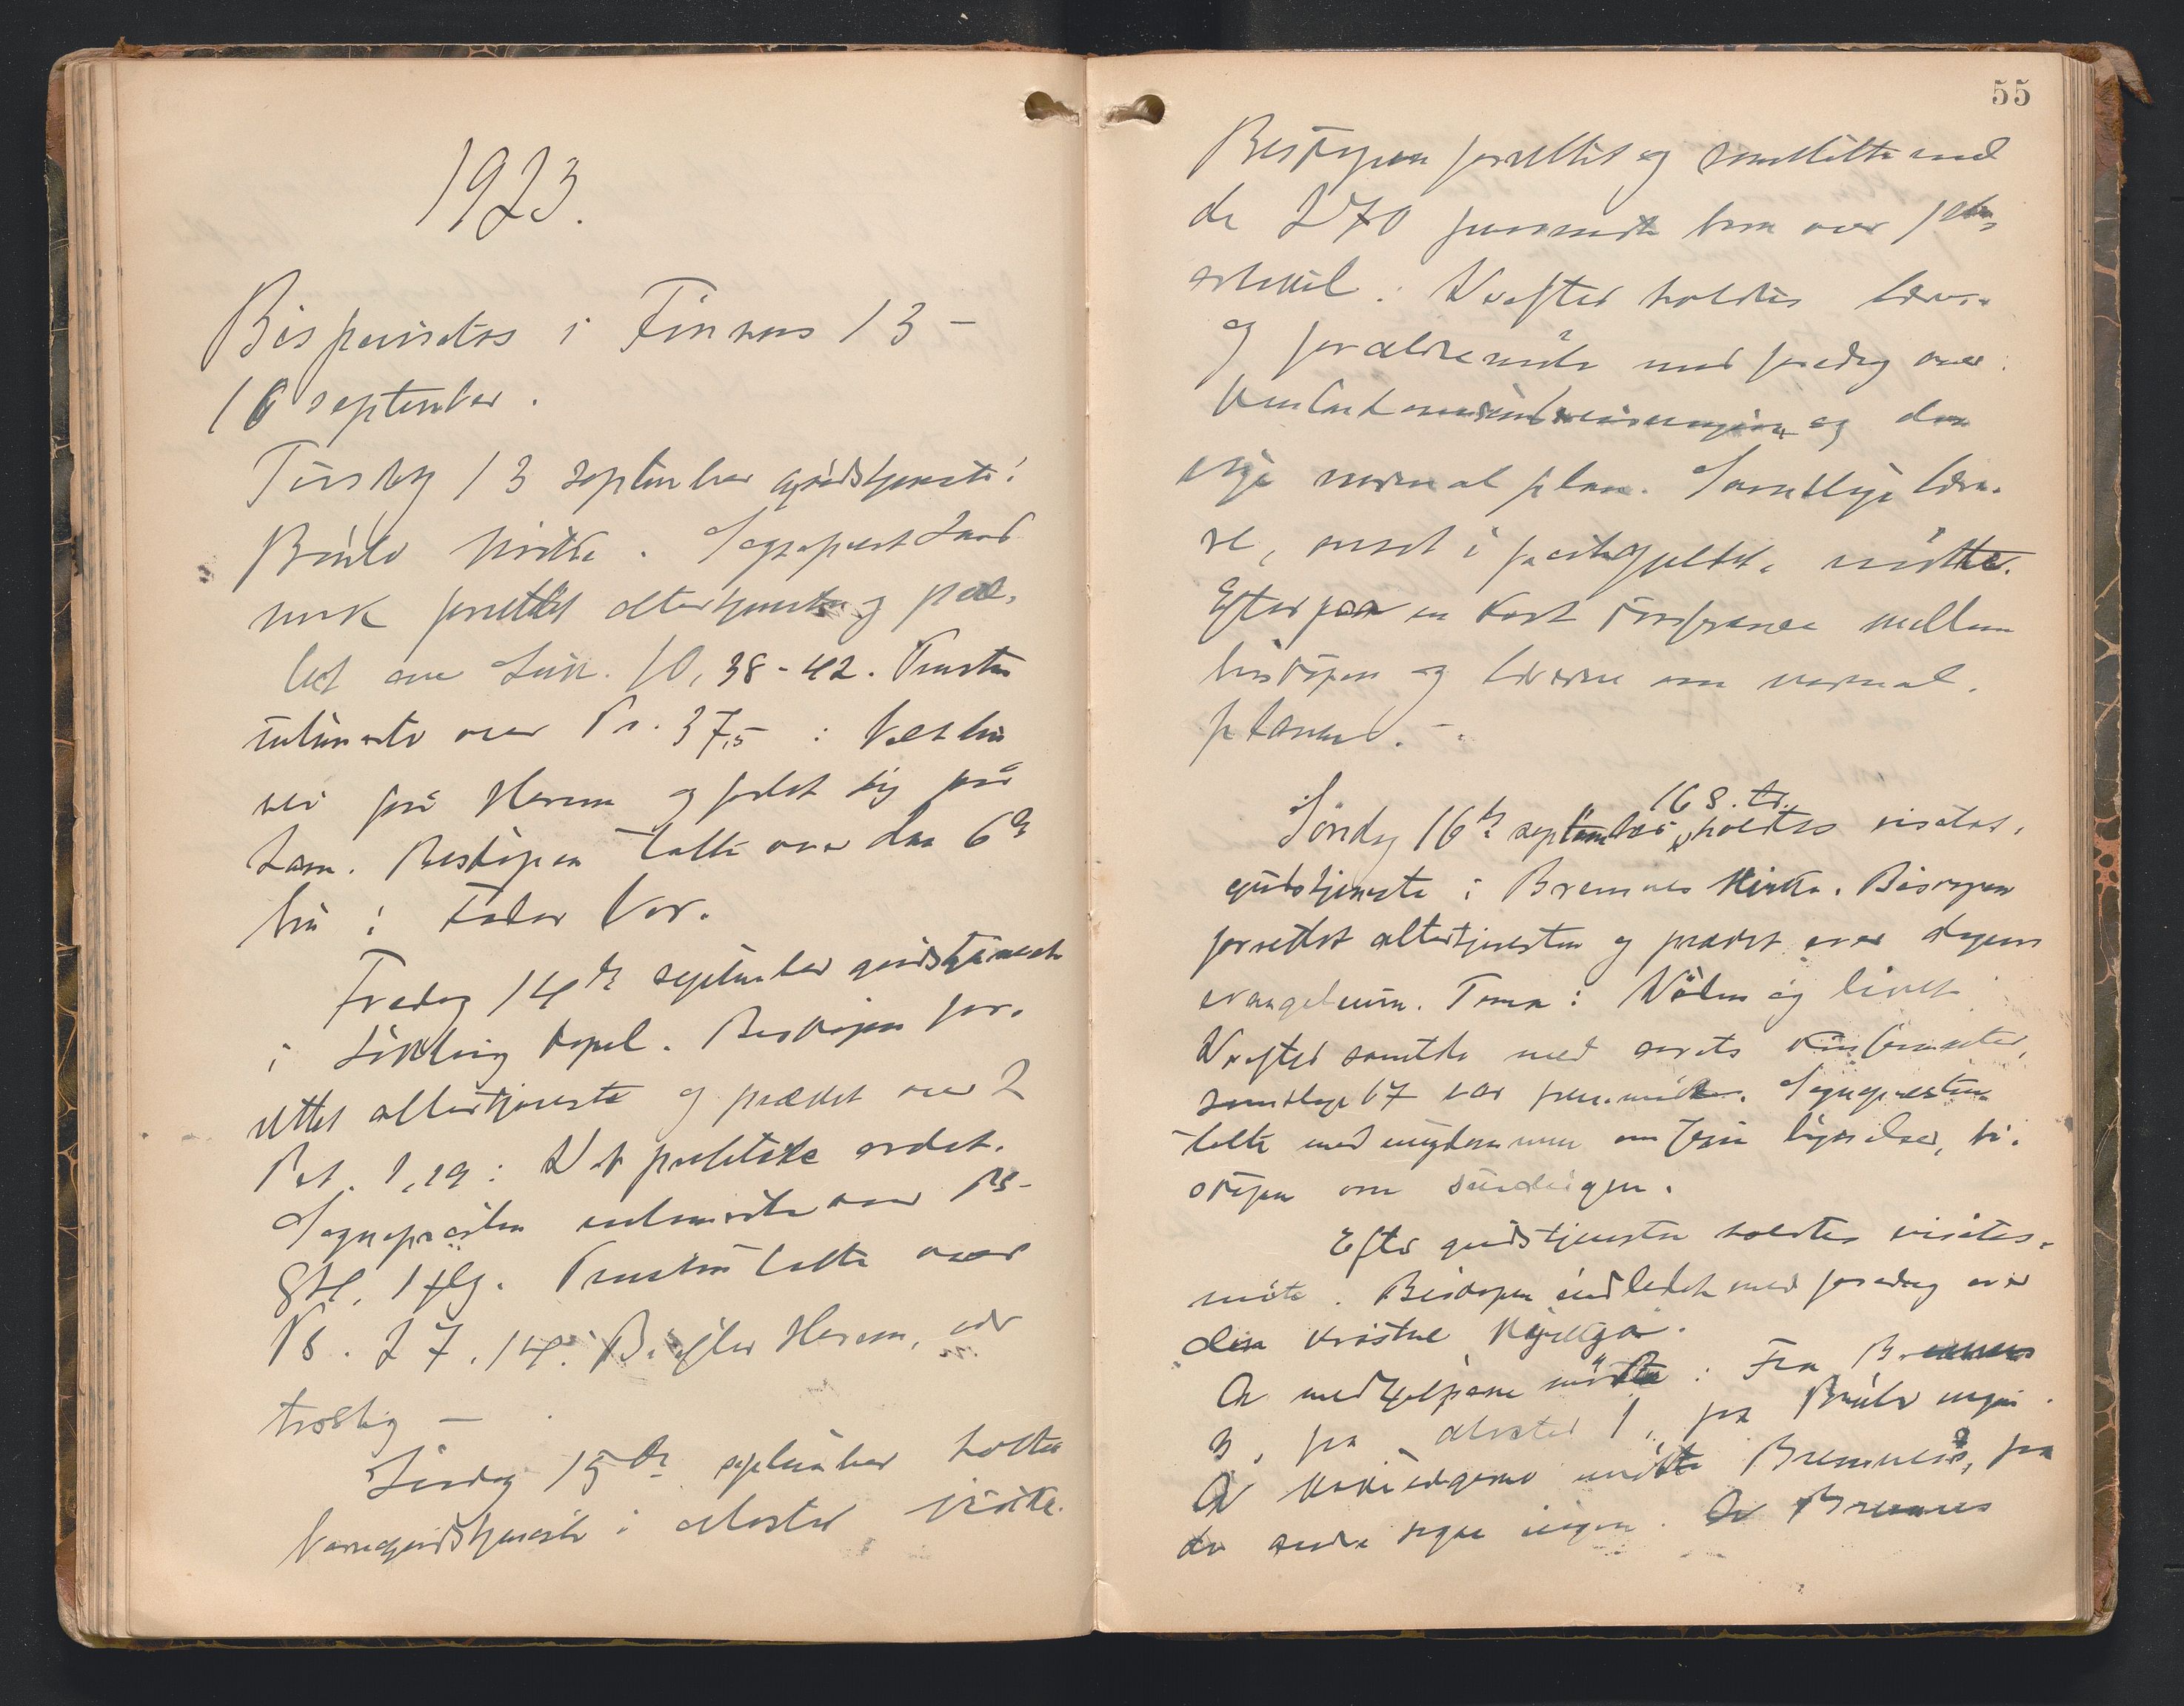 1923.
Bispevisitas i Finnaas 13 -
16 september.
Tirsdag 13 september gudstjeneste i
Bømlo kirke. Sogneprest Land
mark forrettet altertjeneste og præ-
ket over Luk. 10, 38-42. Prosten
intimerte over Ps. 37,5: Vælt din
vei på Herren og forlat dig på
ham. Biskopen talte over den 6te
bøn i Fader Vor.
Fredag 14de september gudstjeneste
i Lykling kapel. Biskopen for-
rettet altertjeneste og præket over 2
Pet. 1,19: Det profetiske ordet.
Sognepresten intimerte over Ps.
84, 1 flg. Prosten talte over
Ps. 27, 14: Bi efter Herren, vær
trøstig —
Lördag 15de september holdtes
barnegudstjeneste i Moster kirke.
55
Biskopen forrettet og samtalte med
de 270 fremmøtte barn over 1ste
artikel. Derefter holdtes lærer-
og forældremøte med foredrag over
og den
nye normalplan. Samtlige lære-
re, ansat i prestegjeldet, møtte.
Efterpaa en kort konferanse mellem
biskopen og lærerne om normal-
planen. -
Söndag 16de september 16 s. e. tr. holdtes visitas-
gudstjeneste i Bremnes kirke. Biskopen
forrettet altertjenesten og præket over dagens
evangelium. Tema: Döden og livet
Derefter samtale med årets konfirmanter,
samtlige 67 var fremmøtt. Sognepresten
talte med ungdommen om Jesu lignelser, bi-
skopen om
Efter gudstjenesten holdtes visitas-
møte. Biskopen indledet med foredrag over
den kristne kirkegår.
Av medhjelperne møtte: Fra Bremnes
3, fra Moster 1, fra Bømlo ingen.
Av kirkeværgerne møtte Bremnes, fra
de andre sogne ingen. Av Bremnes